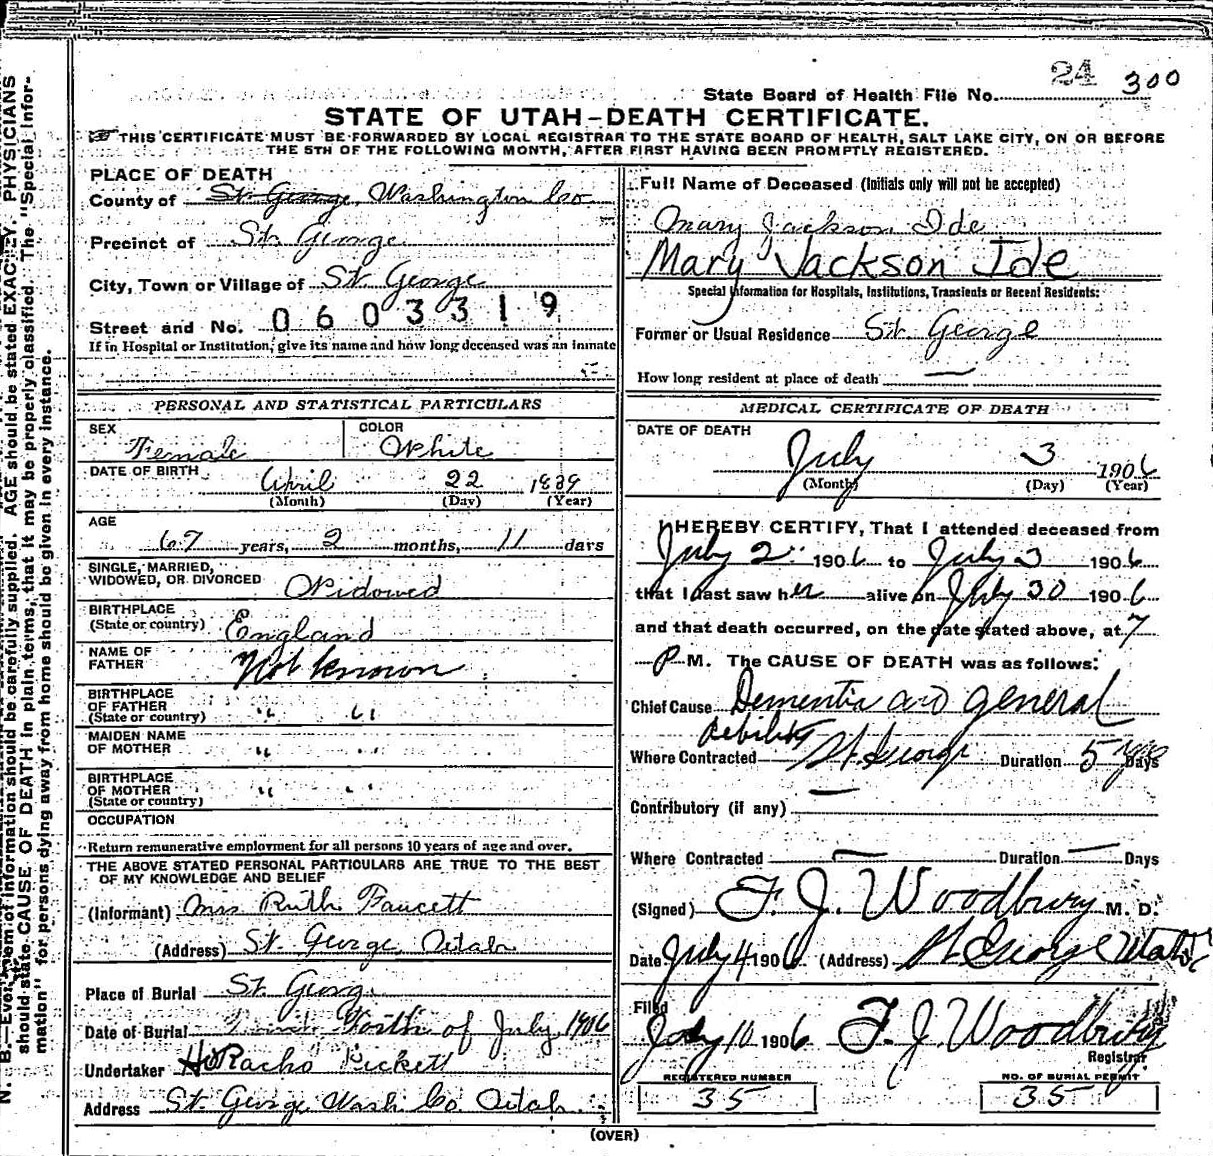 24 300
State Board of Health File No.
STATE OF UTAH-DEATH CERTIFICATE.
THIS CERTIFICATE MUST BE FORWARDED BY LOCAL REGISTRAR TO THE STATE BOARD OF HEALTH, SALT LAKE CITY, ON OR BEFORE
THE 5TH OF THE FOLLOWING MONTH, AFTER FIRST HAVING BEEN PROMPTLY REGISTERED.
PLACE OF DEATH
County of St. George, Washington Co
Precinct of St. George
City, Town or Village of St. George
Street and No. 0603319
If in Hospital or Institution, give its name and how long deceased was an inmate
PERSONAL AND STATISTICAL PARTICULARS
SEX Female COLOR White
DATE OF BIRTH April 22 1839
(Month) (Day) (Year)
AGE
67 years, 2 months, 11 days
SINGLE, MARRIED,
WIDOWED, OR DIVORCED Widowed
BIRTHPLACE
(State or country) England
NAME OF
FATHER Not known
BIRTHPLACE
OF FATHER
(State or country) " "
MAIDEN NAME
OF MOTHER " "
BIRTHPLACE
OF MOTHER
(State or country) " "
OCCUPATION
Return remunerative employment for all persons 10 years of age and over.
THE ABOVE STATED PERSONAL PARTICULARS ARE TRUE TO THE BEST
OF MY KNOWLEDGE AND BELIEF
(Informant) Mrs Ruth Faucett
(Address) St. George, Utah
Place of Burial St. George
Date of Burial of July, 1906
Undertaker Horacho Pickett
Address St. George Wash Co Utah
Full Name of Deceased (Initials only will not be accepted)
Mary Jackson Ide
Mary Jackson Ide
Special Information for Hospitals, Institutions, Transients or Recent Residents:
Former or Usual Residence St. George
How long resident at place of death —
MEDICAL CERTIFICATE OF DEATH
DATE OF DEATH
July 3 1906
(Month) (Day) (Year)
I HEREBY CERTIFY, That I attended deceased from
July 2 1906 to July 3 1906
that I last saw her alive on July 30 1906
and that death occurred, on the date stated above, at 7
P M. The CAUSE OF DEATH was as follows:
Chief Cause Dementia and general
debility
Where Contracted St. George Duration 5 yrs Days
Contributory (if any) —
Where Contracted — Duration — Days
(Signed) F. J. Woodbury M. D.
Date July 4 1906 (Address) St George Utah
Filed
July 10 1906 F. J. Woodbury
Registrar
REGISTERED NUMBER NO. OF BURIAL PERMIT
35 35
(OVER)
N. B.—Every item of information should be carefully supplied. AGE should be stated EXACTLY. PHYSICIANS
should state CAUSE OF DEATH in plain terms, that it may be properly classified. The "Special Infor-
mation" for persons dying away from home should be given in every instance.